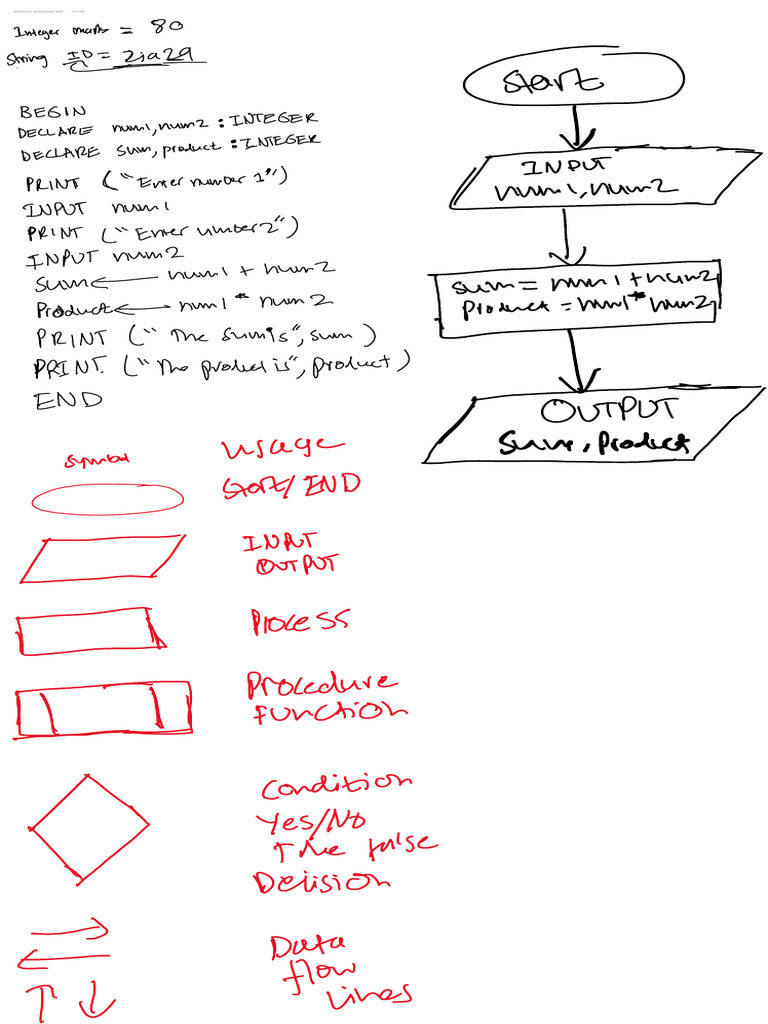 Integer marks = 80
String ID = 2ia29
BEGIN
DECLARE num1, num2 : INTEGER
DECLARE sum, product : INTEGER
PRINT ("Enter number 1")
INPUT num1
PRINT ("Enter number 2")
INPUT num2
Sum ← num1 + num2
Product ← num1 * num2
PRINT ("The sum is", sum)
PRINT ("The product is", product)
END
start
INPUT
num1, num2
sum = num1 + num2
Product = num1 * num2
OUTPUT
Sum, Product
symbol
usage
Start/END
INPUT
OUTPUT
Process
Procedure
function
Condition
Yes/No
True false
Decision
Data
flow
Lines